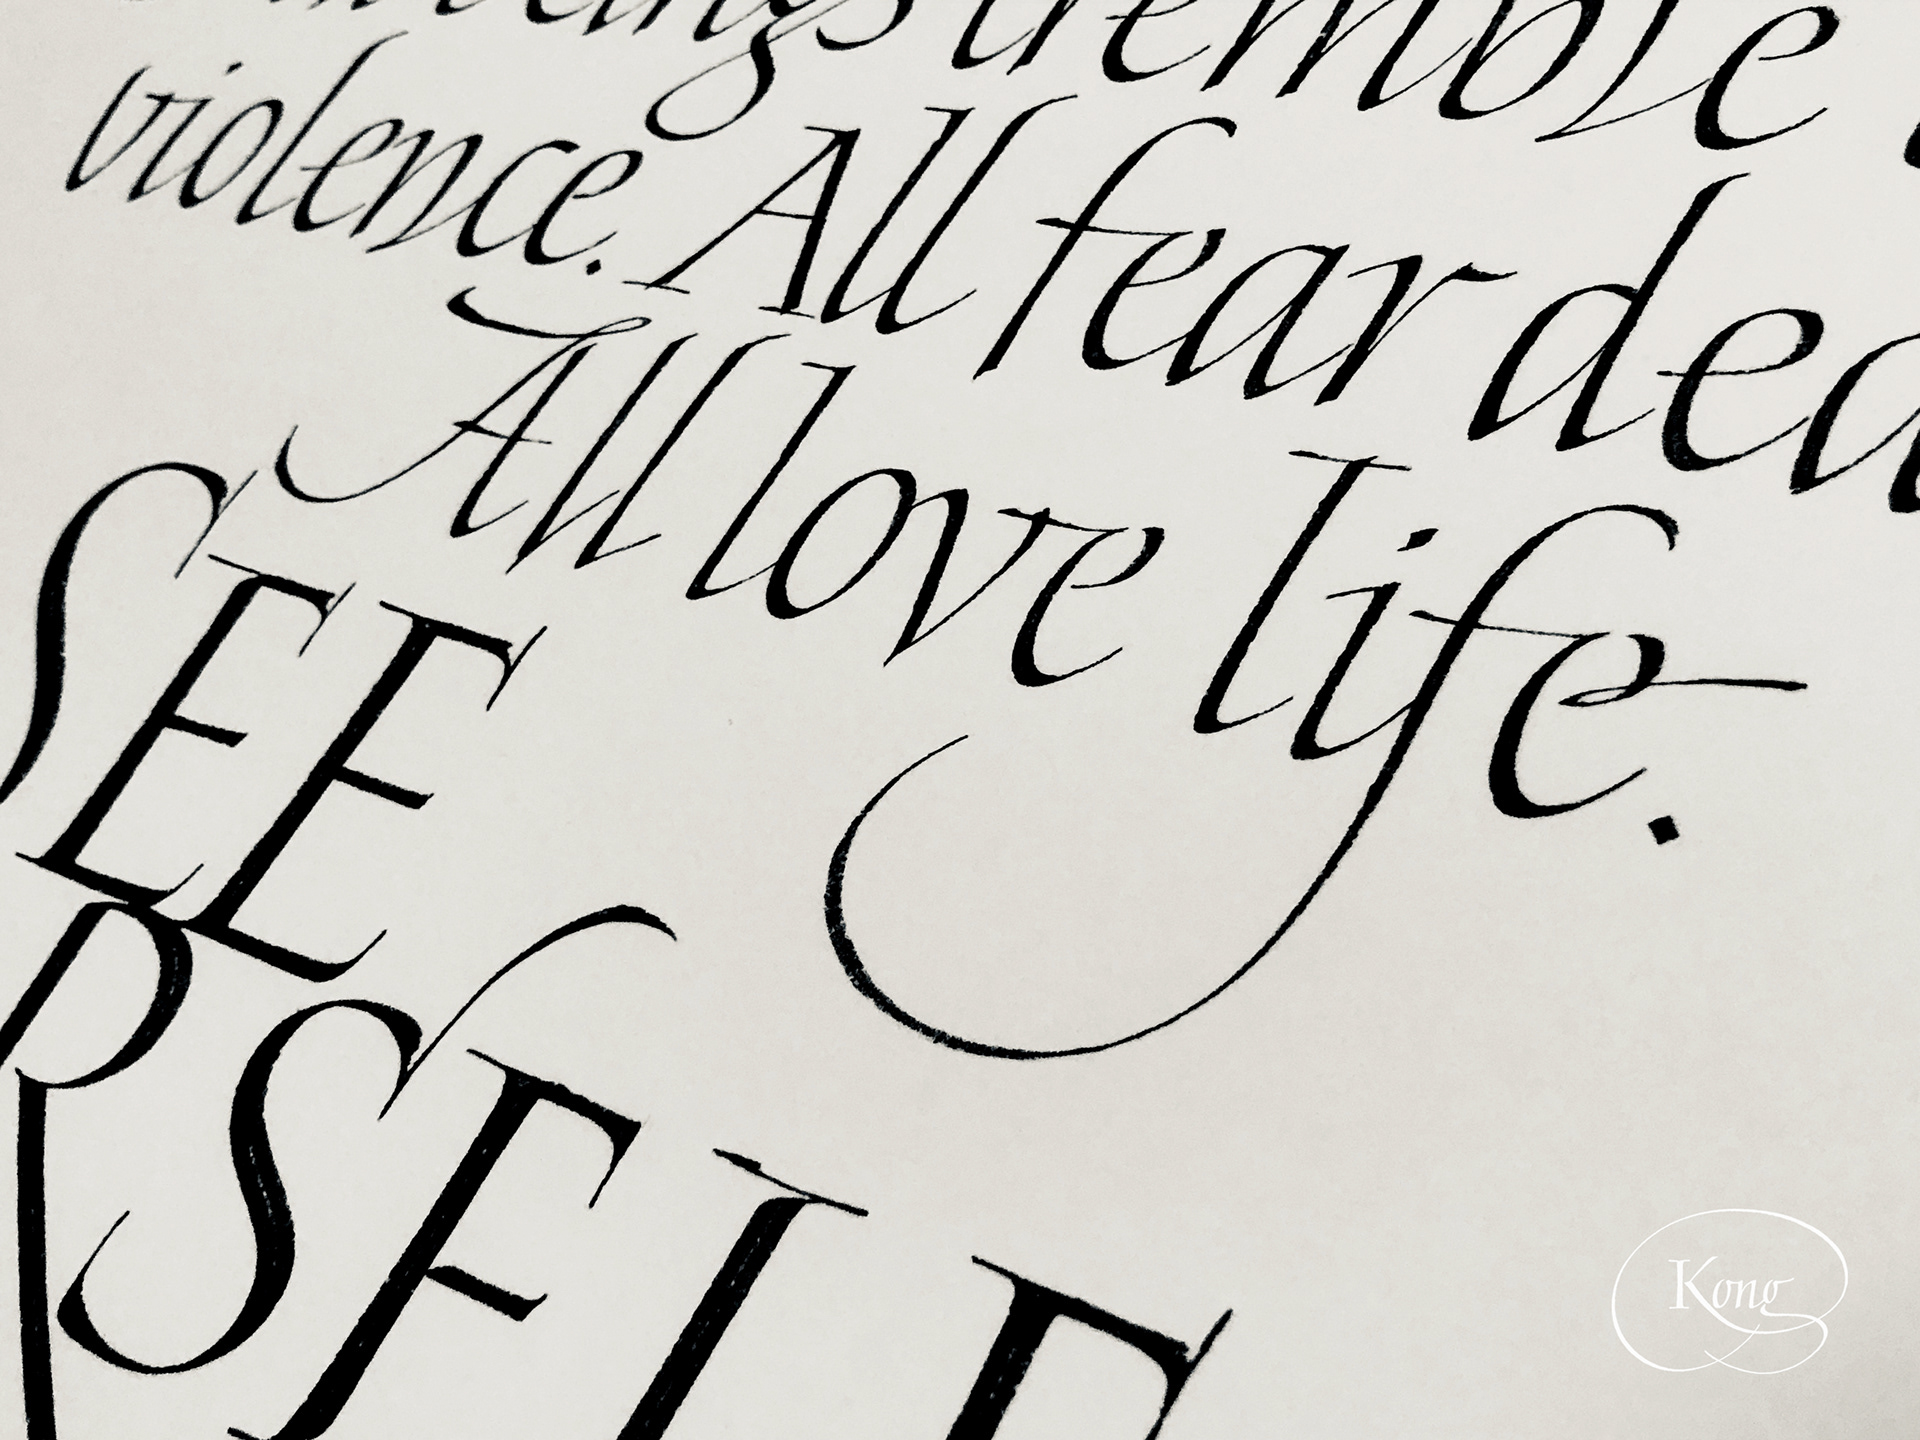 beings tremble
violence. All fear dea
All love life.
SEE
SELF
Kong